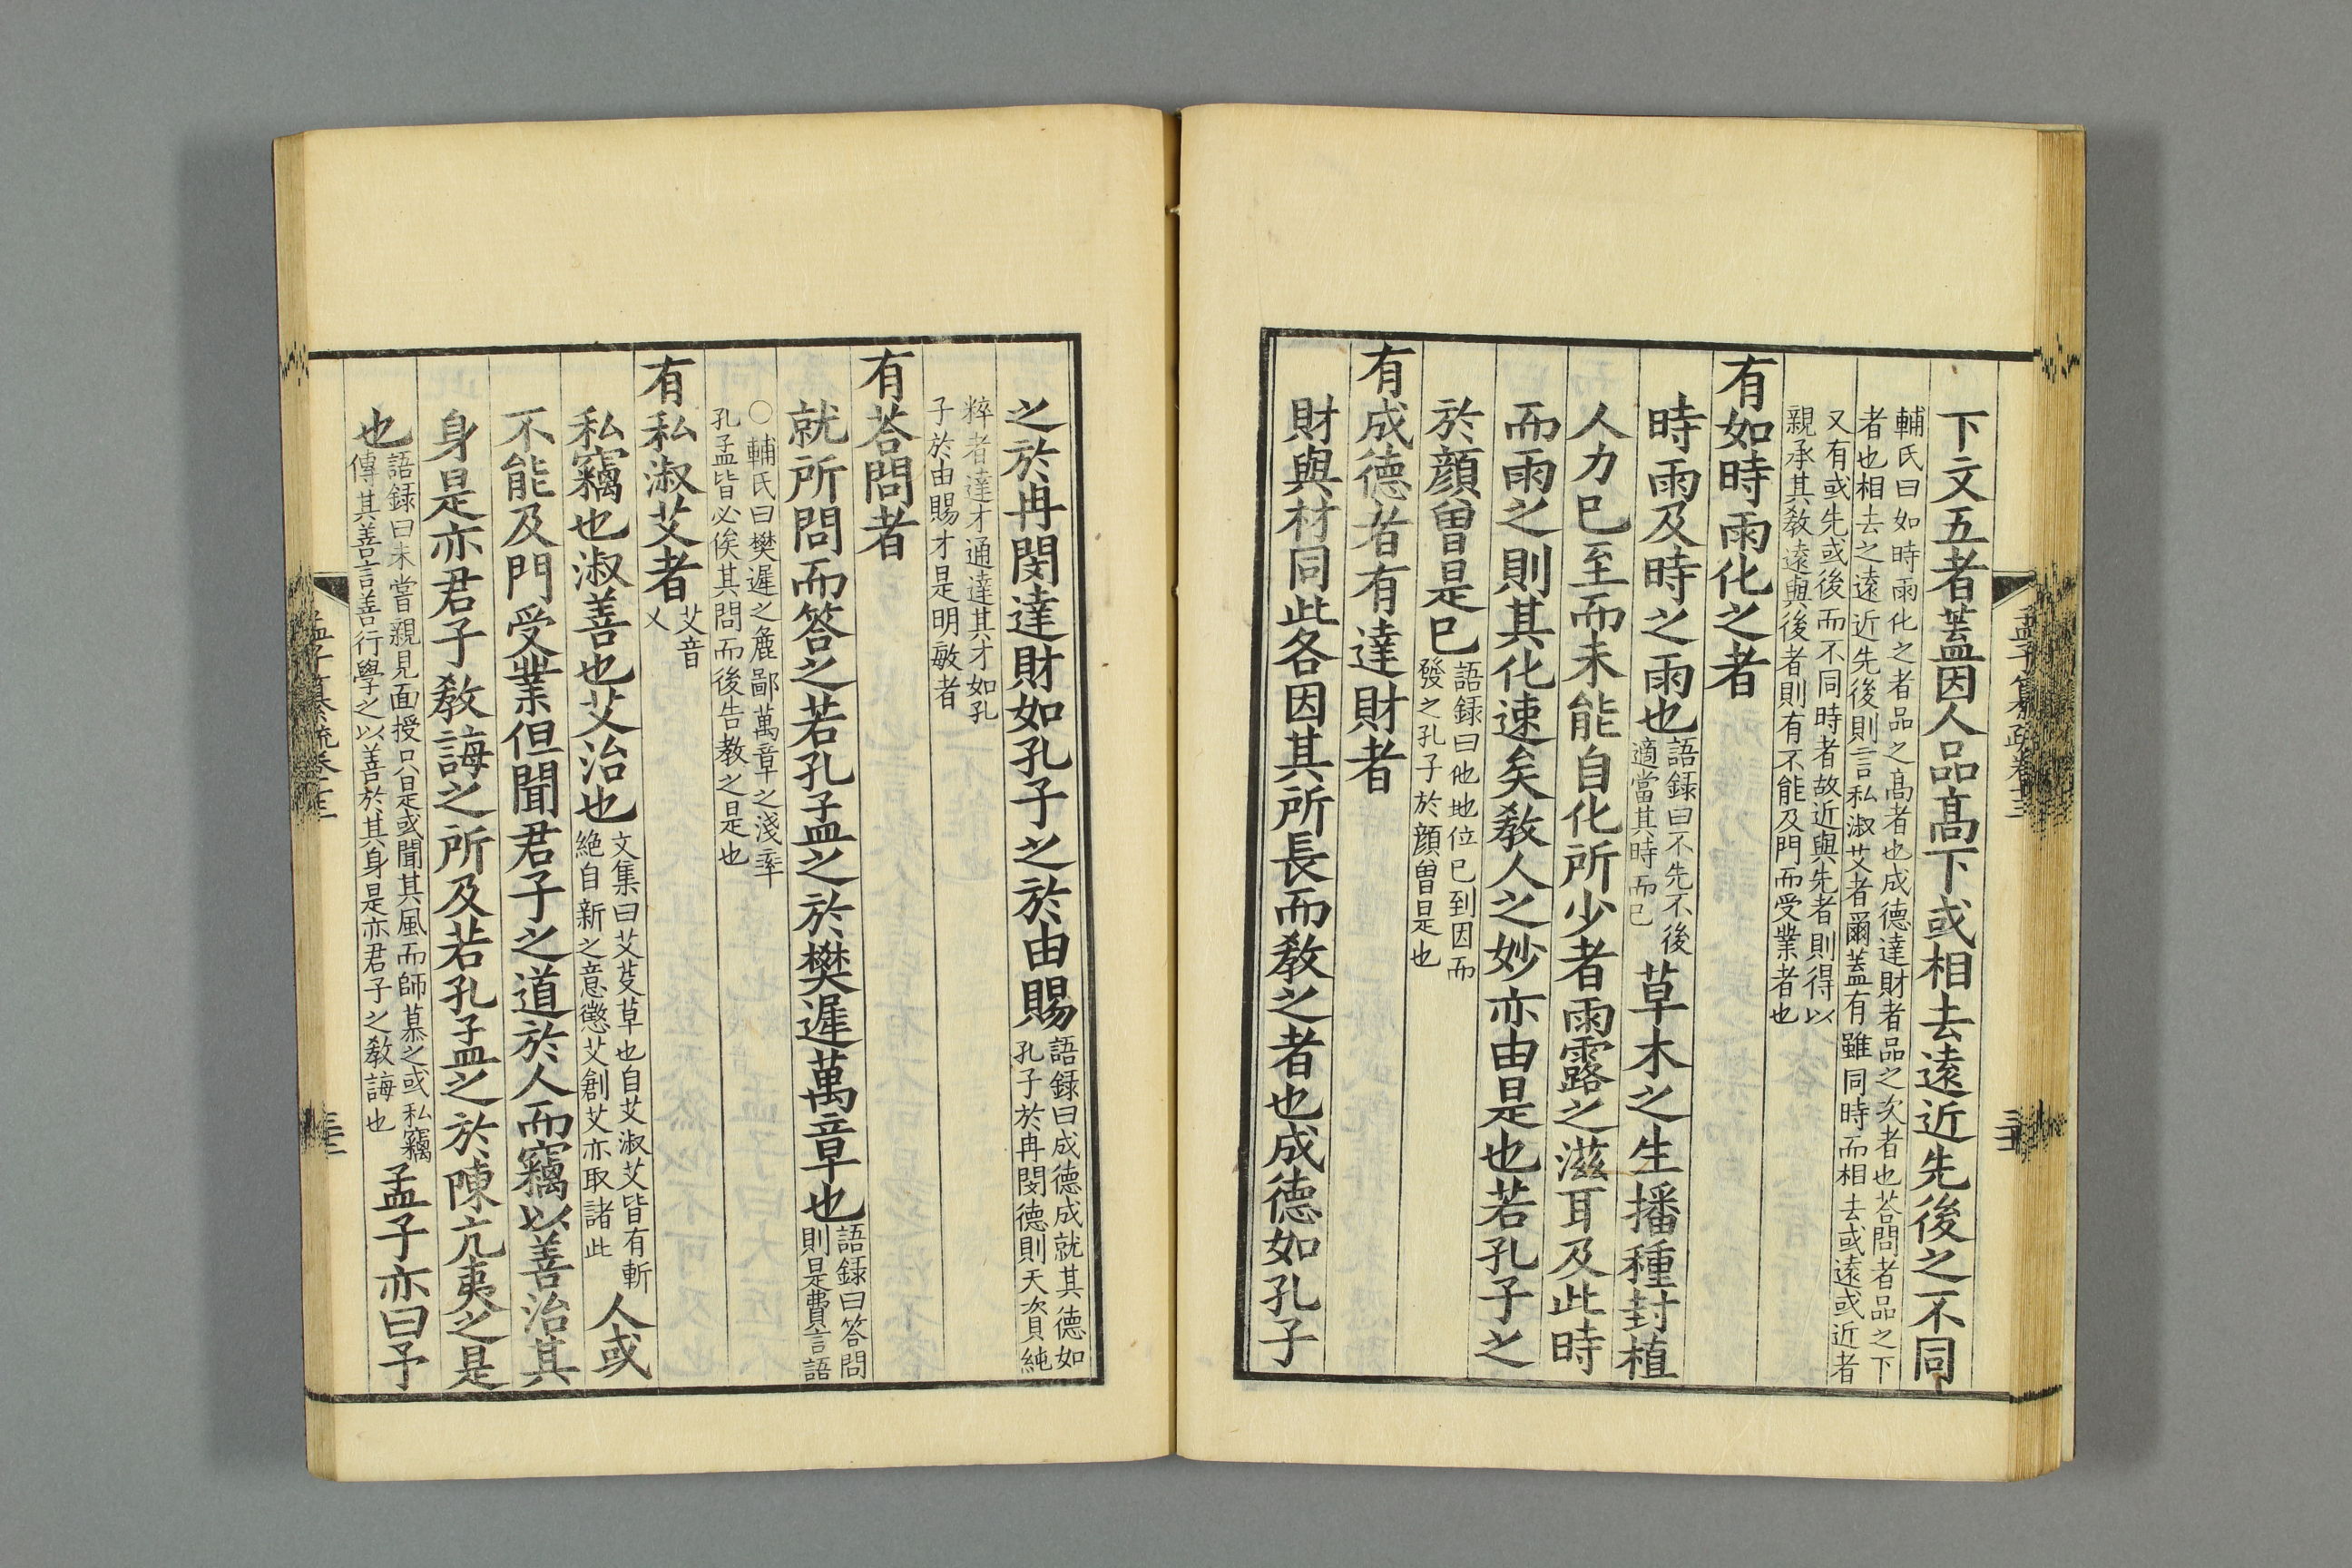 下文五者蓋因人品髙下或相去逺近先後之不同
輔氏曰如時雨化之者品之髙者也成德達財者品之次者也荅問者品之下
者也相去之逺近先後則言私淑艾者爾蓋有雖同時而相去或逺或近者
又有或先或後而不同時者故近與先者則得以
親承其敎逺與後者則有不能及門而受業者也
有如時雨化之者
時雨及時之雨也
語録曰不先不後
適當其時而已
草木之生播種封植
人力已至而未能自化所少者雨露之滋耳及此時
而雨之則其化速矣敎人之妙亦由是也若孔子之
於顔曾是已
語録曰他地位已到因而
發之孔子於顔曾是也
有成德者有達財者
財與材同此各因其所長而敎之者也成德如孔子
之於冉閔達財如孔子之於由賜
語録曰成德成就其德如
孔子於冉閔德則天資純
粹者達才通達其才如孔
子於由賜才是明敏者
有荅問者
就所問而答之若孔孟之於樊遲萬章也
語録曰答問
則是費言語
○輔氏曰樊遲之麄鄙萬章之淺率
孔孟皆必俟其問而後告敎之是也
有私淑艾者
艾音
乂
私竊也淑善也艾治也
文集曰艾芟草也自艾淑艾皆有斬
絶自新之意懲艾創艾亦取諸此
人或
不能及門受業但聞君子之道於人而竊以善治其
身是亦君子敎誨之所及若孔孟之於陳亢夷之是
也
語録曰未嘗親見面授只是或聞其風而師慕之或私竊
傳其善言善行學之以善於其身是亦君子之敎誨也
孟子亦曰予